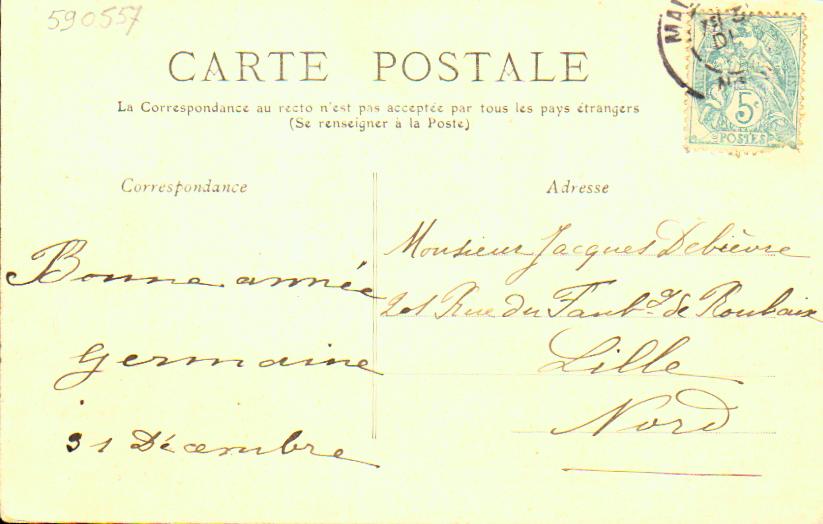 590557
CARTE POSTALE
La Correspondance au recto n'est pas acceptée par tous les pays étrangers
(Se renseigner à la Poste)
Correspondance
Bonne année
Germaine
31 Décembre
Adresse
Monsieur Jacques Debièvre
201 Rue du Faub.g de Roubaix
Lille
Nord
5c
POSTES